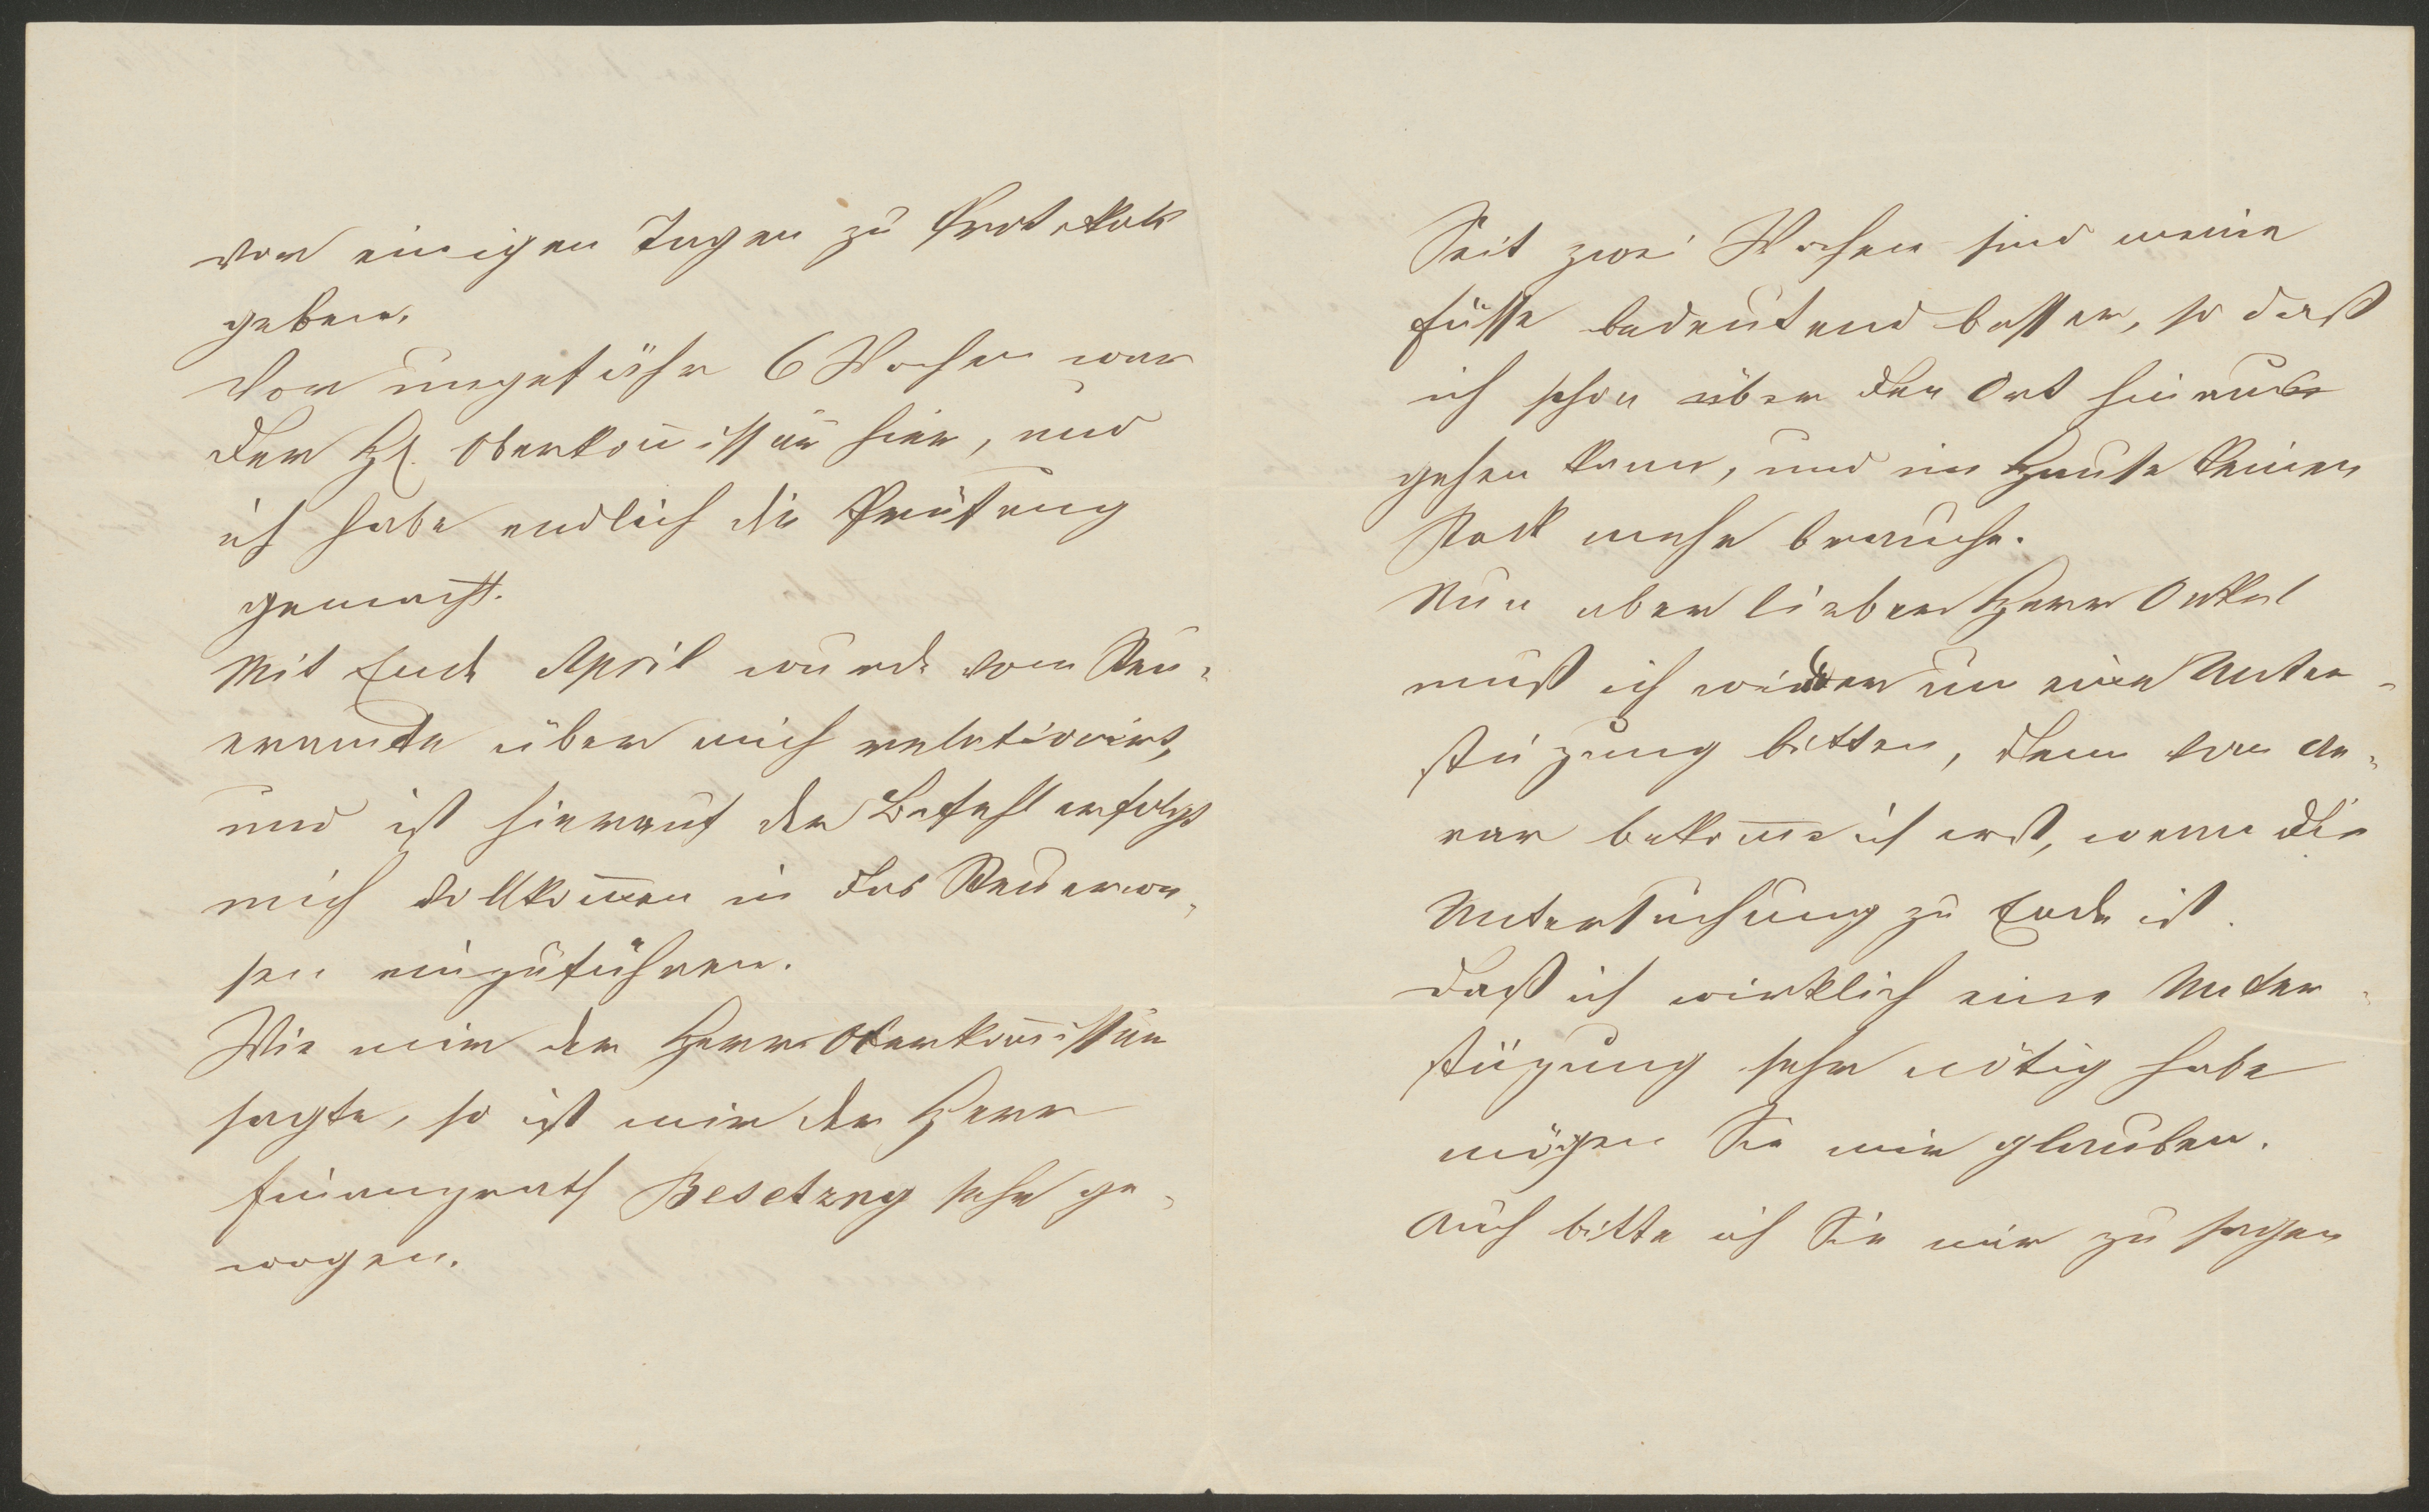 vor einigen Tagen zu Protokoll
geben.
Vor ungefähr 6 Wochen war
der H. Oberkom̅issär hier, und
ich habe endlich die Prüfung
gemacht.
Mit Ende April wurde vom Steu-
eramte über mich relationirt,
und ist hierauf der Befehl erfolgt
mich vollkom̅en in das Steuerwe-
sen einzuführen.
Wie mir der Herr Oberkom̅issär
sagte, so ist mir der Herr
Finanzrath Besetzny sehr ge-
wogen.
Seit zwei Wochen sind meine
Füsse bedeutend besser, so daß
ich schon über den Ort hinaus
gehen kann, und im Hause keinen
Stock mehr brauche.
Nun aber lieber Herr Onkel
muß ich wieder um eine Unter-
stüzung bitten, denn vom Ae-
rar bekom̅e ich erst, wenn die
Untersuchung zu Ende ist.
Daß ich wirklich eine Unter-
stüzung sehr nötig habe
mögen Sie mir glauben.
Auch bitte ich Sie mir zu sagen